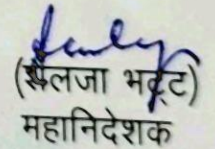 (शैलजा भट्ट)
महानिदेशक